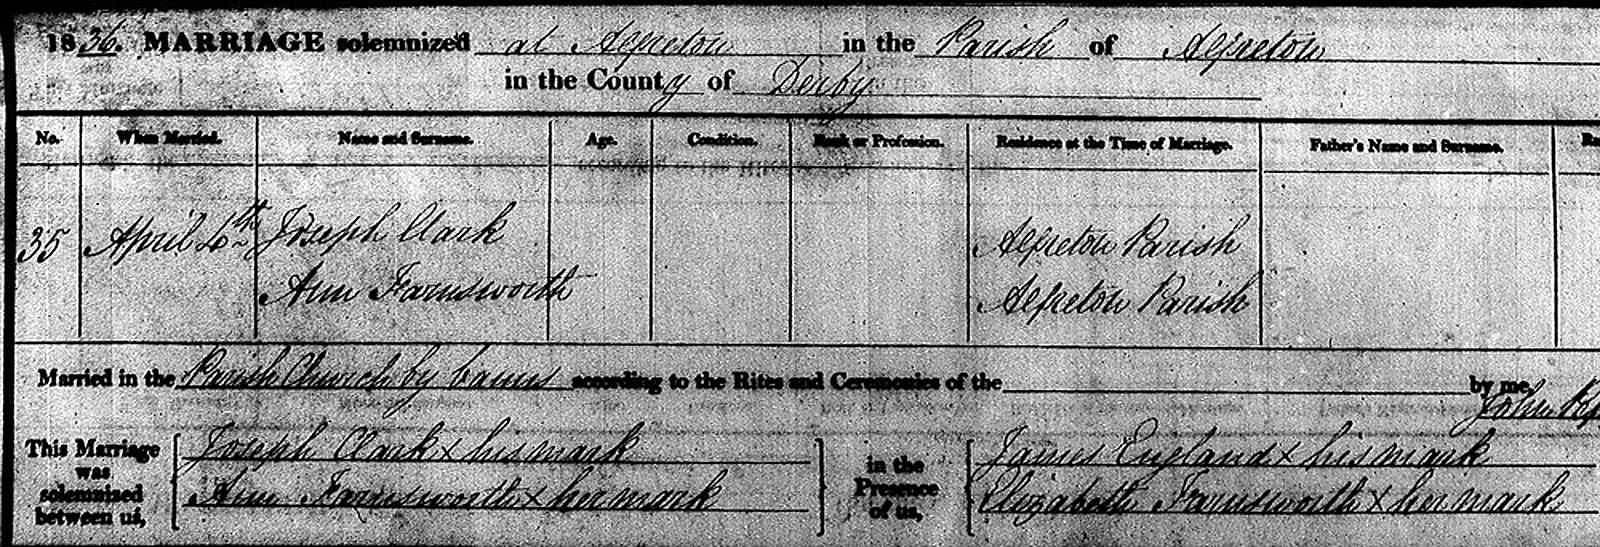 1836. MARRIAGE solemnized at Alfreton in the Parish of Alfreton
in the County of Derby
No. When Married. Name and Surname. Age. Condition. Rank or Profession. Residence at the Time of Marriage. Father's Name and Surname.
35 April 4th Joseph Clark Alfreton Parish
Ann Farnsworth Alfreton Parish
Married in the Parish Church by banns according to the Rites and Ceremonies of the by me,
John
This Marriage was solemnized between us,
Joseph Clark x his mark
Ann Farnsworth x her mark
in the Presence of us,
James England x his mark
Elizabeth Farnsworth x her mark